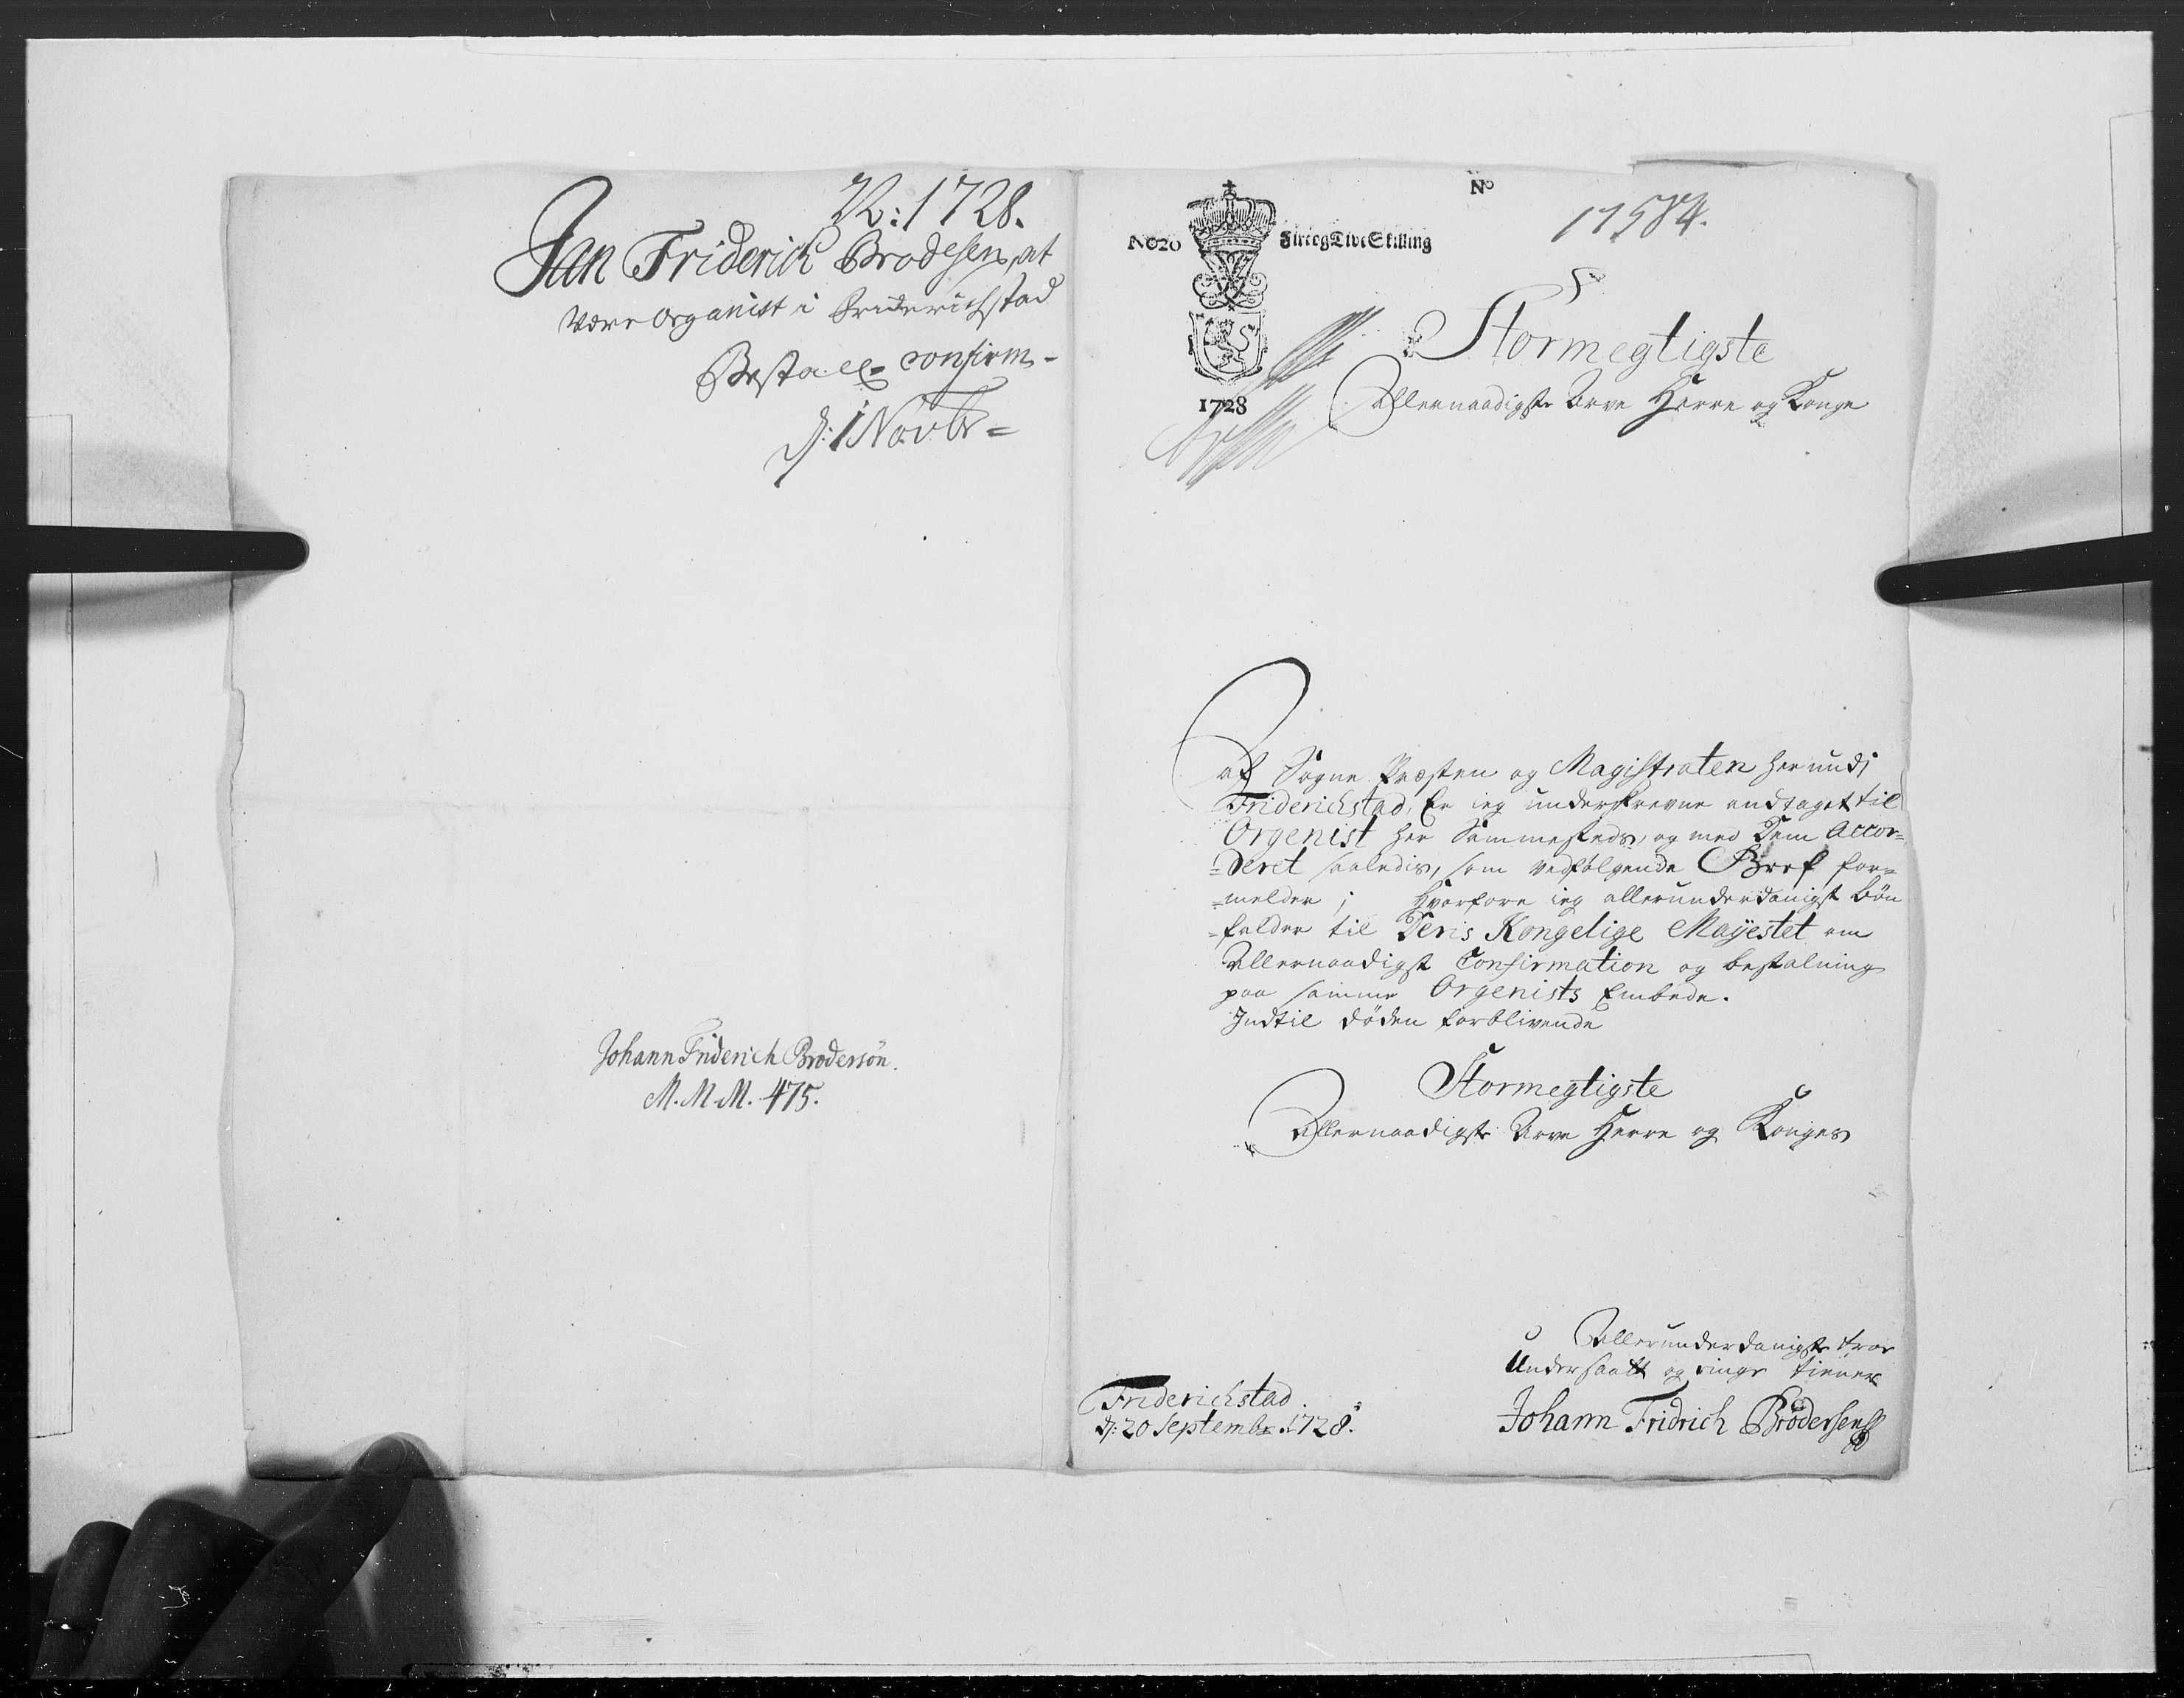 N: 1728.
Jan Friderich Brodesen, at
være organist i Friderichstad
Bestall: confirm-
d: 1 Novbr=
Johann Friderich Brodersøn.
M. M. M. 475.
No
17584.
No20
Fire og Tive Skilling
1728
Stormegtigste
Allernaadigste Arve Herre og Konge
Af Sogne Præsten og Magistraten her udj
Friderichstad, Er ieg underskrevne andtaget til
Orgenist her Sammesteds, og med Dem Accor=
=deret saaledis, som vedfølgende Bref for=
=melder; Hvorfore ieg allerunderdanigst bøn
=falder til Deris Kongelige Mayestet om
Allernaadigst Confirmation og bestalning
paa samme Orgenists Embede.
Indtil døden forblivende
Stormegtigste
Allernaadigste Arve Herre og Konges
Allerunderdanigste troe
Undersaatt og ringe tienere
Johann Fridrich Brodersen
Friderichstad
d: 20 Septembr: 1728.